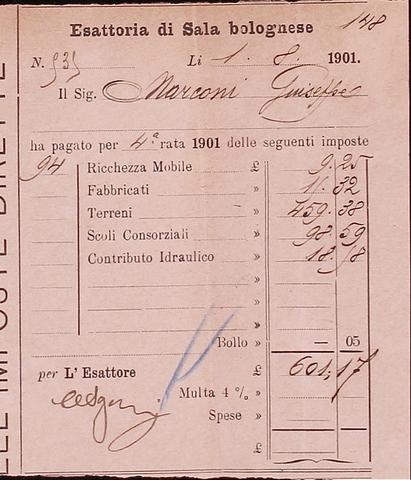 148
Esattoria di Sala bolognese
N. 535 Li 1. 8. 1901.
Il Sig. Marconi Giuseppe
ha pagato per 4ª rata 1901 delle seguenti imposte
94 Ricchezza Mobile £ 9. 25
Fabbricati » 11. 32
Terreni » 459. 38
Scoli Consorziali » 98. 59
Contributo Idraulico » 18. 58
»
»
»
Bollo » — 05
per L' Esattore £ 601,17
Multa 4 % »
Spese »
£
LE IMPOSTE DIRETTE